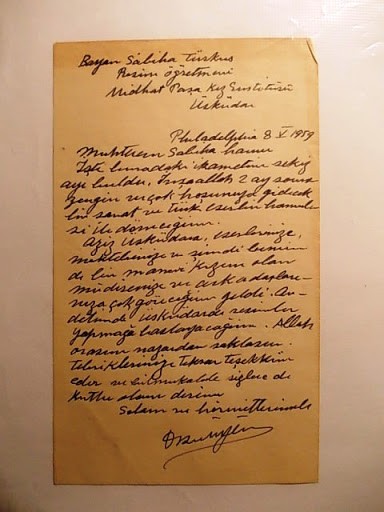 Bayan Sabiha Türkus
Resim öğretmeni
Midhat Paşa Kız Enstitüsü
Üsküdar
Philadelphia 8 V 1959
Muhterem Sabiha hanım
İşte buradaki ikametim sekiz
ayı buldu. İnşaallah 2 ay sonra
zengin ve çok hoşunuza gidecek
bir sanat ve Türk eserleri hamule
si ile döneceğim.
Aziz Üsküdara, eserlerinize,
mektebinize ve şimdi benim
de bir manevi kızım olan
müdirenize ve arkadaşları
nıza çok göreceğim geldi. Av
detimde Üsküdarda resimler
yapmağa başlayacağım. Allah
orasını nazardan saklasın.
Tebriklerinize tekrar teşekkür
eder ve bilmukabele sizlere de
kutlu olsun derim
Selam ve hürmetlerimle